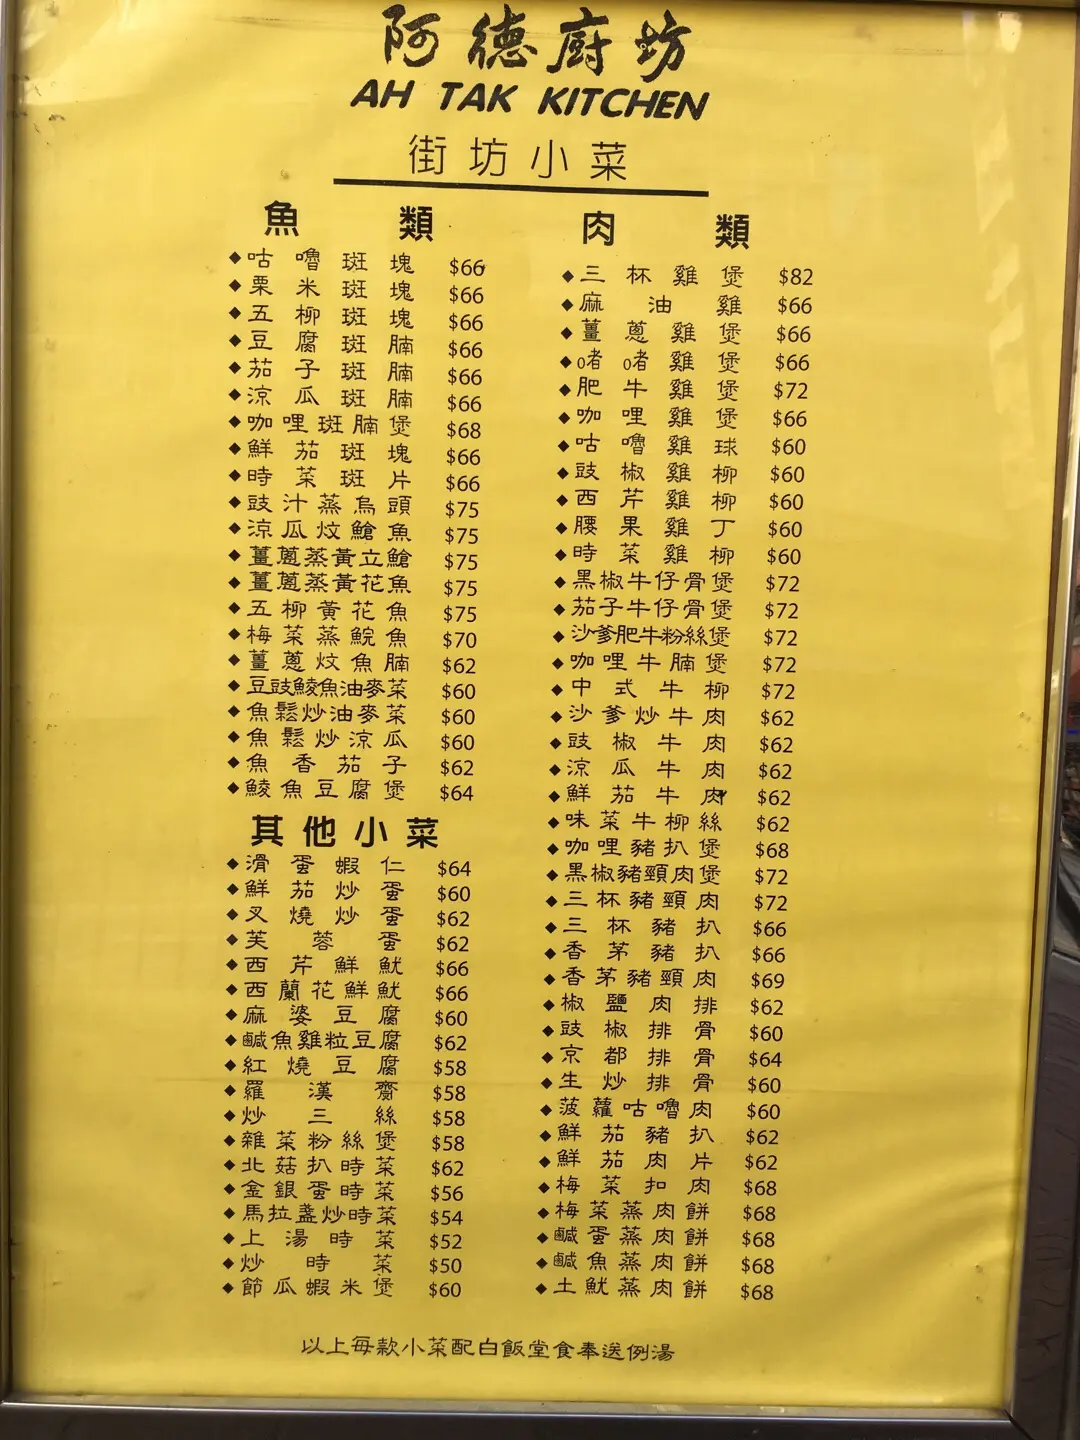 阿德廚坊
AH TAK KITCHEN
街坊小菜
魚類
◆咕嚕斑塊 $66
◆栗米斑塊 $66
◆五柳斑塊 $66
◆豆腐斑腩 $66
◆茄子斑腩 $66
◆涼瓜斑腩 $66
◆咖哩斑腩煲 $68
◆鮮茄斑塊 $66
◆時菜斑片 $66
◆豉汁蒸烏頭 $75
◆涼瓜炆鱠魚 $75
◆薑蔥蒸黃立鱠 $75
◆薑蔥蒸黃花魚 $75
◆五柳黃花魚 $75
◆梅菜蒸鯇魚 $70
◆薑蔥炆魚腩 $62
◆豆豉鯪魚油麥菜 $60
◆魚鬆炒油麥菜 $60
◆魚鬆炒涼瓜 $60
◆魚香茄子 $62
◆鯪魚豆腐煲 $64
其他小菜
◆滑蛋蝦仁 $64
◆鮮茄炒蛋 $60
◆叉燒炒蛋 $62
◆芙蓉蛋 $62
◆西芹鮮魷 $66
◆西蘭花鮮魷 $66
◆麻婆豆腐 $60
◆鹹魚雞粒豆腐 $62
◆紅燒豆腐 $58
◆羅漢齋 $58
◆炒三絲 $58
◆雜菜粉絲煲 $58
◆北菇扒時菜 $62
◆金銀蛋時菜 $56
◆馬拉盞炒時菜 $54
◆上湯時菜 $52
◆炒時菜 $50
◆節瓜蝦米煲 $60
肉類
◆三杯雞煲 $82
◆麻油雞 $66
◆薑蔥雞煲 $66
◆啫啫雞煲 $66
◆肥牛雞煲 $72
◆咖哩雞煲 $66
◆咕嚕雞球 $60
◆豉椒雞柳 $60
◆西芹雞柳 $60
◆腰果雞丁 $60
◆時菜雞柳 $60
◆黑椒牛仔骨煲 $72
◆茄子牛仔骨煲 $72
◆沙爹肥牛粉絲煲 $72
◆咖哩牛腩煲 $72
◆中式牛柳 $72
◆沙爹炒牛肉 $62
◆豉椒牛肉 $62
◆涼瓜牛肉 $62
◆鮮茄牛肉 $62
◆味菜牛柳絲 $62
◆咖哩豬扒煲 $68
◆黑椒豬頸肉煲 $72
◆三杯豬頸肉 $72
◆三杯豬扒 $66
◆香茅豬扒 $66
◆香茅豬頸肉 $69
◆椒鹽肉排 $62
◆豉椒排骨 $60
◆京都排骨 $64
◆生炒排骨 $60
◆菠蘿咕嚕肉 $60
◆鮮茄豬扒 $62
◆鮮茄肉片 $62
◆梅菜扣肉 $68
◆梅菜蒸肉餅 $68
◆鹹蛋蒸肉餅 $68
◆鹹魚蒸肉餅 $68
◆土魷蒸肉餅 $68
以上每款小菜配白飯堂食奉送例湯